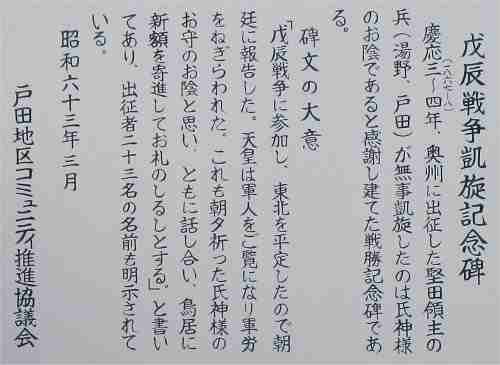 戊辰戦争凱旋記念碑
(一八六七~八)
慶応三~四年、奥州に出征した堅田領主の
兵(湯野、戸田)が無事凱旋したのは氏神様
のお陰であると感謝し建てた戦勝記念碑であ
る。
碑文の大意
「戊辰戦争に参加し、東北を平定したので朝
廷に報告した。天皇は軍人をご覧になり軍労
をねぎらわれた。これも朝夕祈った氏神様の
お守のお陰と思い、ともに話し合い、鳥居に
新額を寄進してお礼のしるしとする。」と書い
てあり、出征者二十三名の名前も明示されて
いる。
昭和六十三年三月
戸田地区コミュニティ推進協議会